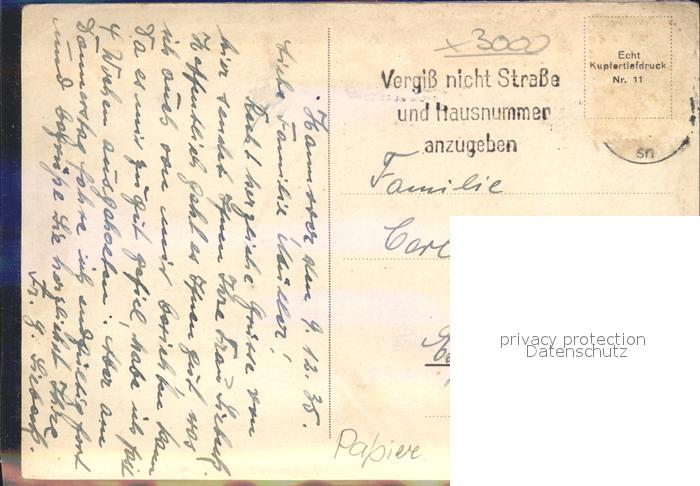 x3000
Echt
Kupfertiefdruck
Nr. 11
Vergiß nicht Straße
und Hausnummer
anzugeben
sn
Familie
Carl
Papier
privacy protection
Datenschutz
Hannover den 9. 12. 35.
Liebe Familie Müller!
Recht herzliche Grüsse von
hier sendet Ihnen Ihre Frau
Hoffentlich geht es Ihnen gut was
ich auch von mir berichten kann
Da es mir so gut gefiel, habe ich
4 Wochen ausgehalten. Aber am
Donnerstag fahre ich endgültig fort
und begrüße Sie herzlichst Ihre
Fr. G.